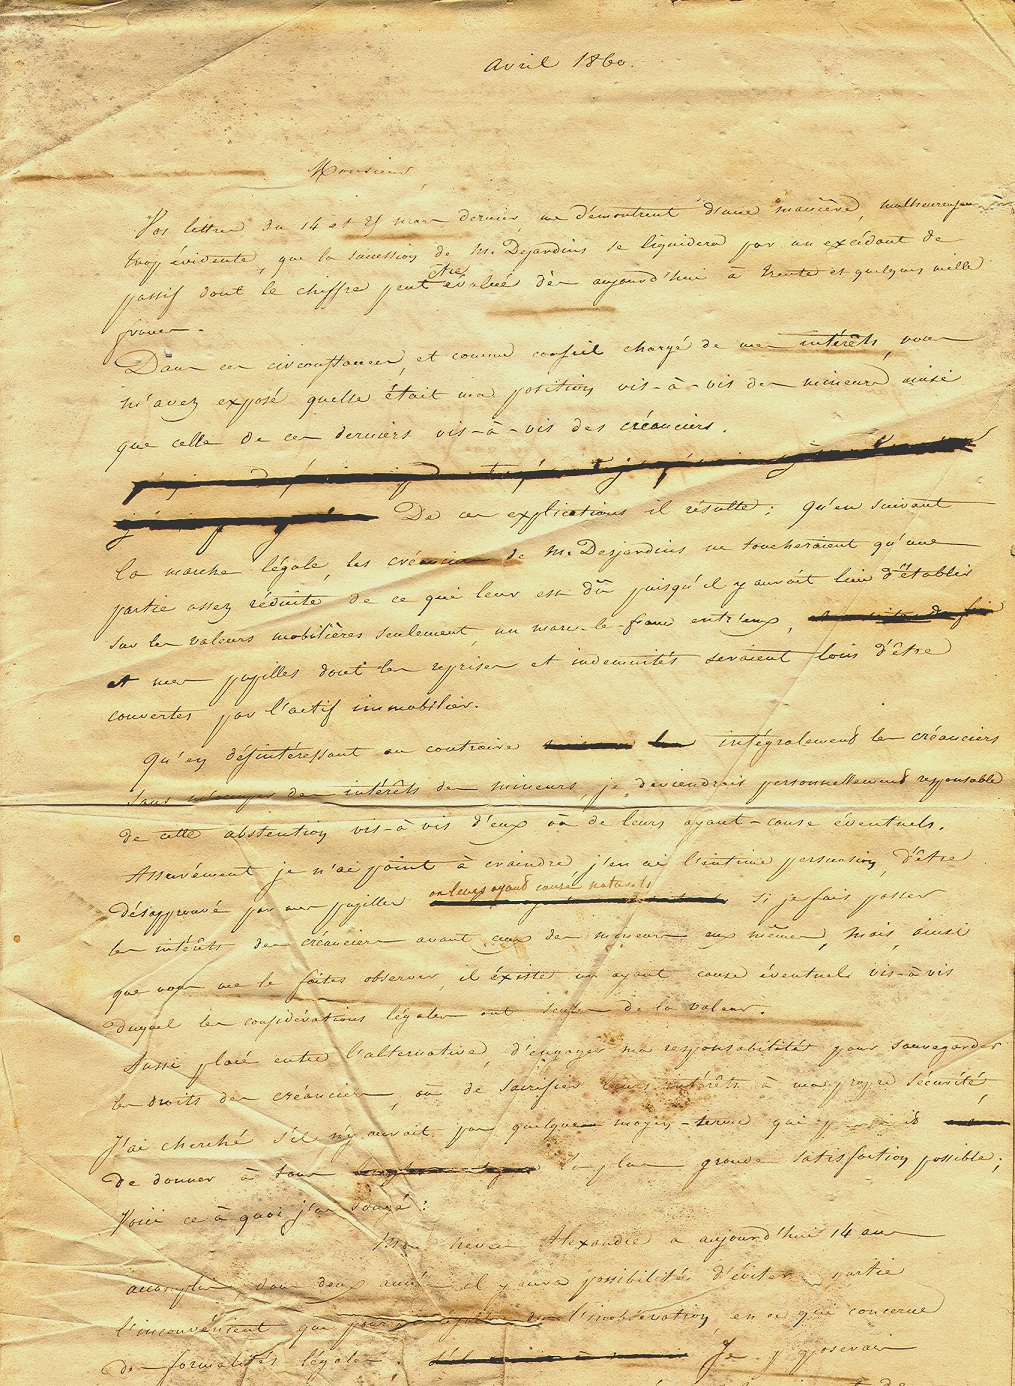 Avril 1860.
Monsieur,
Vos lettres du 14 et 25 mars dernier, me démontrent d'une manière, malheureusement
trop évidente, que la succession de M. Dejardins se liquidera par un excédant de
passif dont le chiffre peut être évalué dès aujourd'hui à trente et quelques mille
francs.
Dans ces circonstances, et comme conseil chargé de mes intérêts, vous
m'avez exposé quelle était ma position vis-à-vis des mineurs ainsi
que celle de ces derniers vis-à-vis des créanciers.
De ces explications il résulte: qu'en suivant
la marche légale, les créanciers de M. Desjardins ne toucheraient qu'une
partie assez réduite de ce qui leur est dû puisqu'il y aurait lieu d'établir
sur les valeurs mobilières seulement, un marc-le-franc entr'eux,
et mes pupilles dont les reprises et indemnités seraient loin d'être
couvertes par l'actif immobilier.
Qu'en désintéressant au contraire intégralement les créanciers
sans m'occuper des intérêts des mineurs, je deviendrais personnellement responsable
de cette abstention vis-à vis d'eux ou de leurs ayant-cause éventuels.
Assurément je n'ai point à craindre j'en ai l'intime persuasion, d'être
désapprouvé par mes pupilles ou leurs ayand cause naturels si je fais passer
les intérêts des créanciers avant ceux des mineurs eux mêmes, mais, ainsi
que vous me le faites observer, il éxiste un ayant cause éventuel vis-à vis
duquel les considérations légales ont seules de la valeur.
Aussi placé entre l'alternative, d'engager ma responsabilité pour sauvegarder
les droits des créanciers, ou de sacrifier leurs intérêts à ma propre sécurité
J'ai cherché s'il n'y aurait pas quelque moyen-terme qui
de donner à tous la plus grande satisfaction possible;
Voici ce à quoi j'ai songé:
Mon neveu Alexandre a aujourd'hui 14 ans
accomplis, dans deux années il y aura possibilité d'éviter partie
l'inconvénient que l'inobservation, en ce qui concerne
des formalités légales. Je proposerais